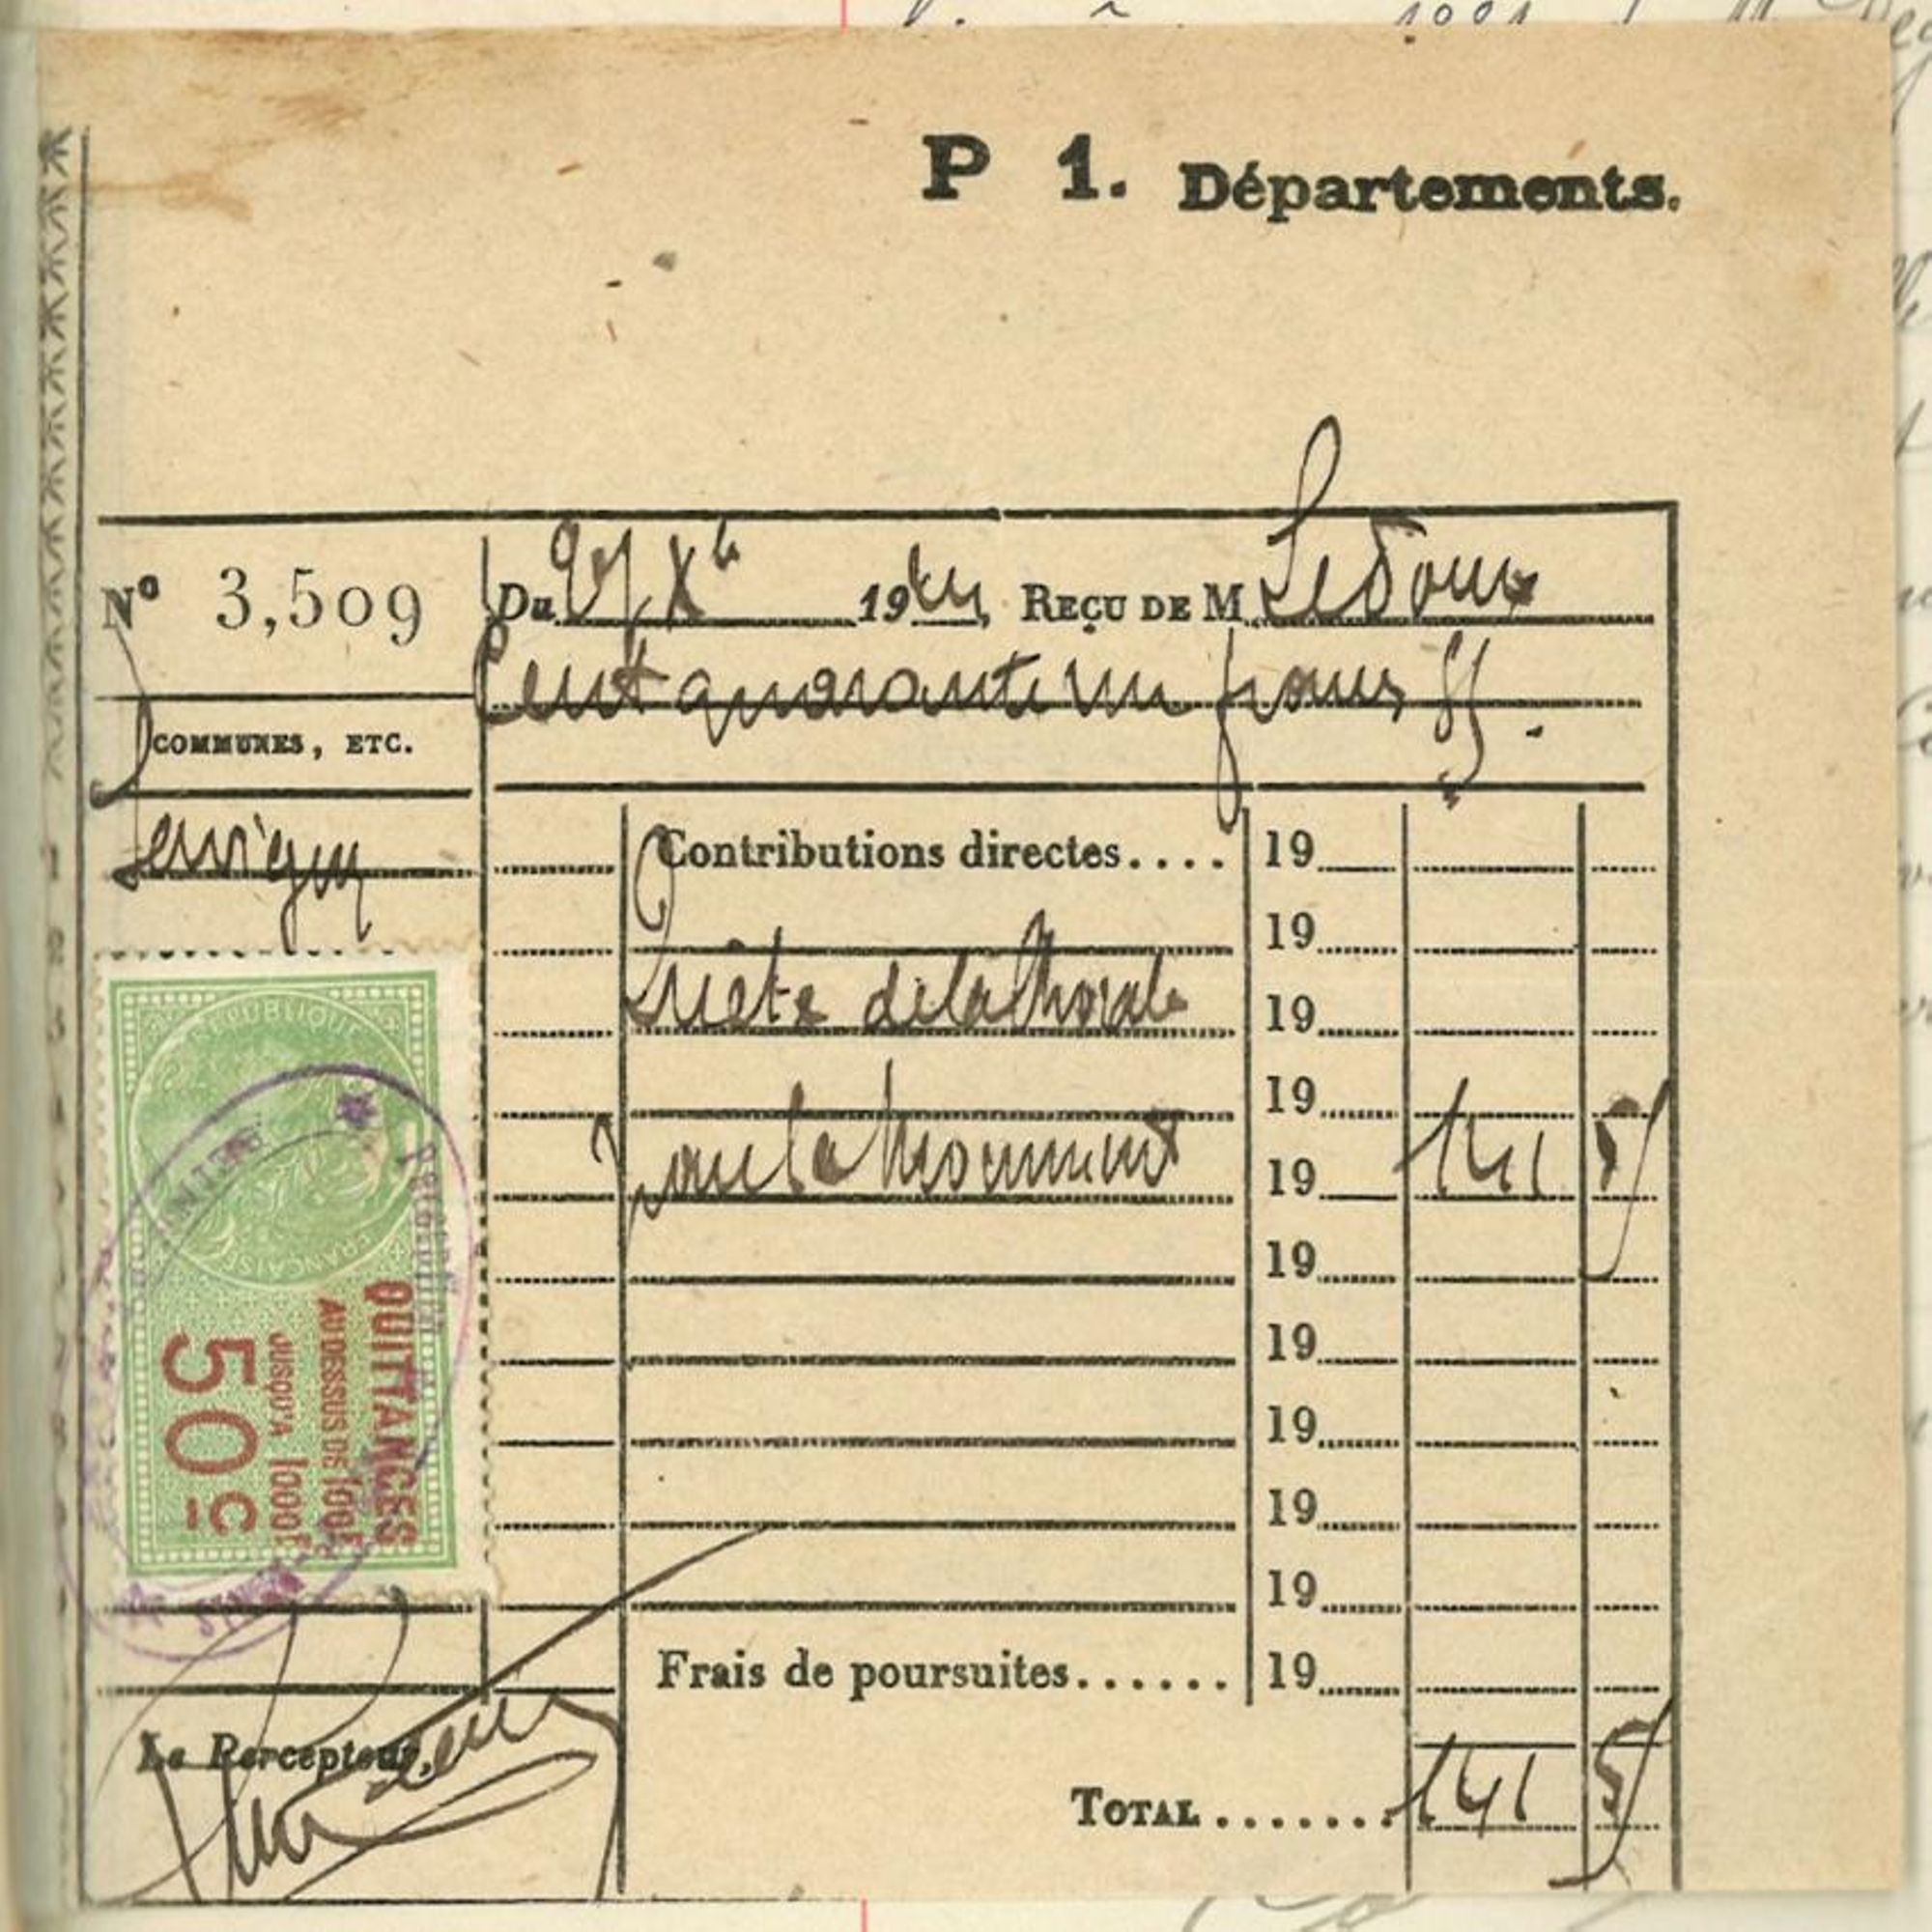 P 1. Départements.
N° 3,509
Du 19 Reçu de M Ledoux
Cent quarante un francs
COMMUNES, ETC.
Servigny
Contributions directes.... 19
19
Quête de la 19
19
pour le Monument 19 141 5
19
19
19
19
19
Frais de poursuites...... 19
Total ....... 141 5
RÉPUBLIQUE
FRANÇAISE
QUITTANCES
AU DESSUS DE 100F
JUSQU'A 1000F
50c
Le Percepteur,